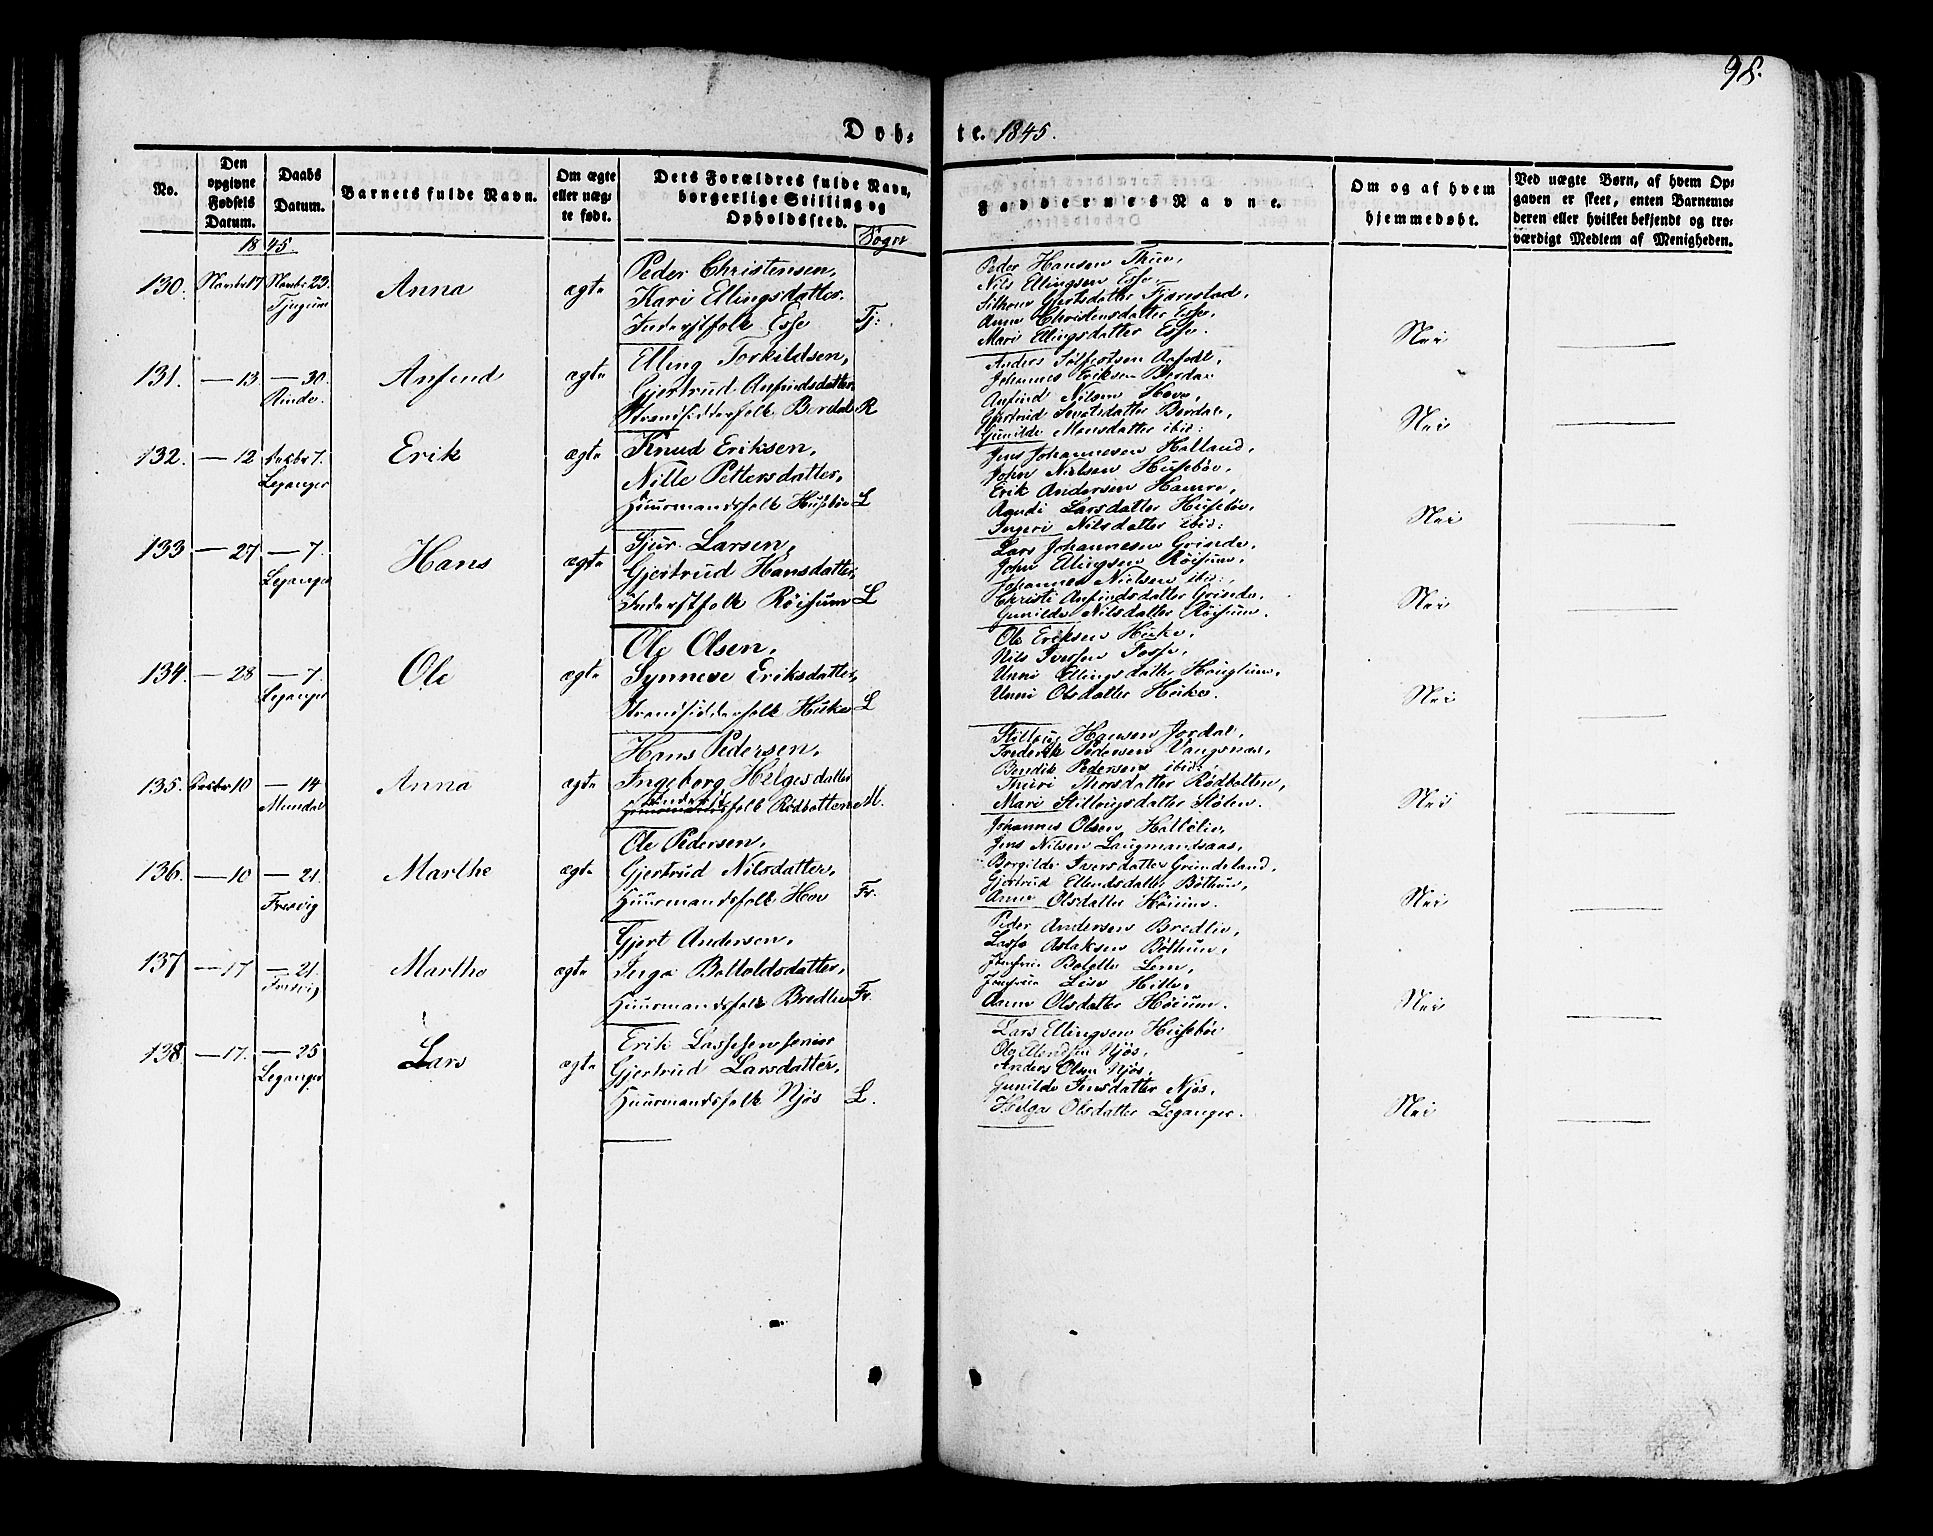 98.
Døb-te. 1845.
No.
Den opgivne Fødsels Datum.
Daabs Datum.
Barnets fulde Navn.
Om ægte eller uægte født.
Dets Forældres fulde Navn, borgerlige Stilling og Opholdssted.
Sogn
Faddernes Navne.
Om og af hvem hjemmedøbt.
Ved uægte Børn, af hvem Opgaven er skeet, enten Barnemoderen eller hvilket bekjendt og troværdigt Medlem af Menigheden.
1845.
130. Novbr 17 Novbr 23. Tjugum
Anna
ægte
Peder Christensen,
Kari Ellingsdatter.
Inderstfolk Esse Tj:
Peder Hansen Thue,
Nils Ellingsen Esse,
Sithove Gjertsdatter Fjærestad,
Anne Christensdatter Esse,
Mari Ellingsdatter Esse.
Nei
131. — 13 — 30. Rinde.
Anfind
ægte
Elling Torkildsen,
Gjertrud Anfindsdatter,
Strandsidderfolk Berdal R
Anders Sjursen
Johannes Eriksen Berdal
Anfind Nilsen Hove,
Gjertrud Sevatsdatter Berdal,
Gunilde Monsdatter ibid:
Nei
132. — 12 Decbr 7. Leganger
Erik
ægte
Knud Eriksen,
Nille Pettersdatter,
Huusmandsfolk Husebøe L
Jens Johannesen Halland,
John Nielsen Husebøe,
Erik Andersen Hamre,
Agndi Larsdatter Husebøe,
Ingeri Nilsdatter ibid:
Nei
133 — 27 — 7. Leganger
Hans
ægte
Sjur Larsen,
Gjertrud Hansdatter,
Inderstfolk Røisum L
Lars Johannesen Grinde,
John Ellingsen Røisum,
Johannes Nielsen ibid:,
Christi Anfindsdatter Grinde,
Gunilde Nilsdatter Røisum.
Nei
134. — 28 — 7. Leganger
Ole
ægte
Ole Olsen,
Synneve Eriksdatter,
Strandsidderfolk Huke L
Ole Eriksen Huke,
Nils Iversen Fosse,
Unni Ellingsdatter Houglum,
Unni Olsdatter Huke.
Nei
135. Decbr 10 — 14 Mundal
Anna
ægte
Hans Pedersen,
Ingeborg Helgesdatter
Inderstfolk Rødbotten M.
Stilloug Hansen Jordal,
Frederik Pedersen Vangsnæs,
Bendik Pedersen ibid:,
Thuri Thorsdatter Rødbotten,
Mari Stillougsdatter Støten.
Nei
136. — 10 — 21. Fresvig
Marthe
ægte
Ole Pedersen,
Gjertrud Nilsdatter,
Huusmandsfolk Hov Fr.
Johannes Olsen Hallelie,
Jens Nilsen Laugmandsaas,
Borgilde Iversdatter Grindeland,
Gjertrud Ellendsdatter Bøthun,
Anne Olsdatter Høium.
Nei
137 — 17 — 21. Fresvig
Marthe
ægte
Gjert Andersen,
Inga Botholdsdatter,
Huusmandsfolk Bredlie Fr.
Peder Andersen Bredlie,
Lasse Aslaksen Bøthun,
Jomfrue Bolette Lem,
Jomfrue Lise Hille,
Anne Olsdatter Høium.
Nei
138 — 17. — 25 Leganger
Lars
ægte
Erik Lassesen senior
Gjertrud Larsdatter,
Huusmandsfolk Njøs L.
Lars Ellingsen Husebøe
Ole Ellendsen Njøs,
Anders Olsen Njøs,
Gunilde Jensdatter Njøs,
Helga Olsdatter Leganger.
Nei